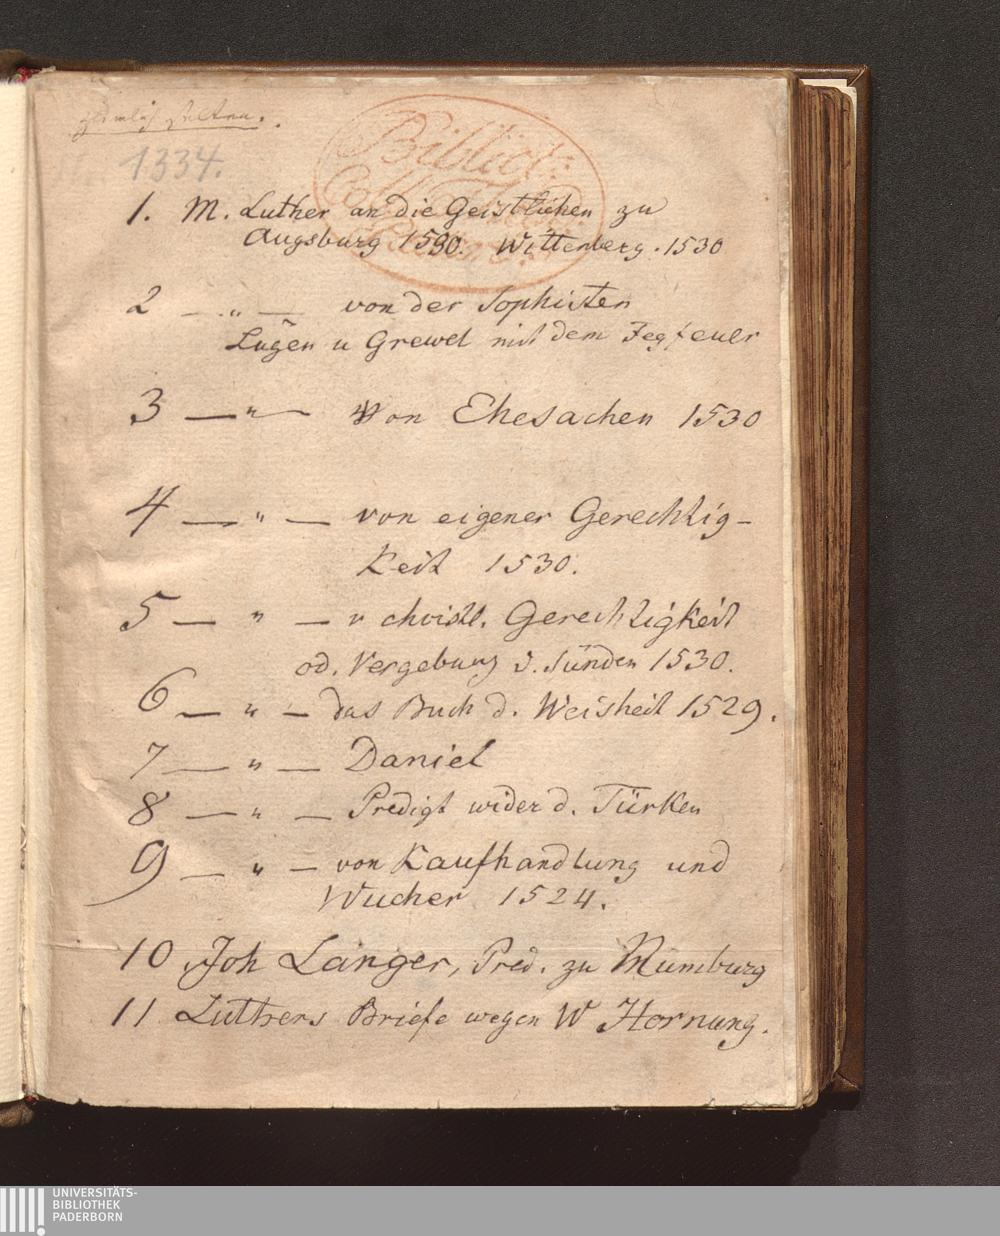 ziemlich selten.
1334.
Biblioth:
1. M. Luther an die Geistlichen zu
Augsburg 1530. Wittenberg. 1530
2 — " — von der Sophisten
Lügen u Grewel mit dem Fegfeuer
3 — " — Von Ehesachen 1530
4 — " — von eigener Gerechtig-
keit 1530.
5 — " — v christl. Gerechtigkeit
od. Vergebung d. Sünden 1530.
6 — " — das Buch d. Weisheit 1529.
7 — " — Daniel
8 — " — Predigt wider d. Türken
9 — " — von Kaufhandlung und
Wucher 1524.
10 Joh Langer, Pred. zu Numburg
11 Luthers Briefe wegen W Hornung.
UNIVERSITÄTS-
BIBLIOTHEK
PADERBORN